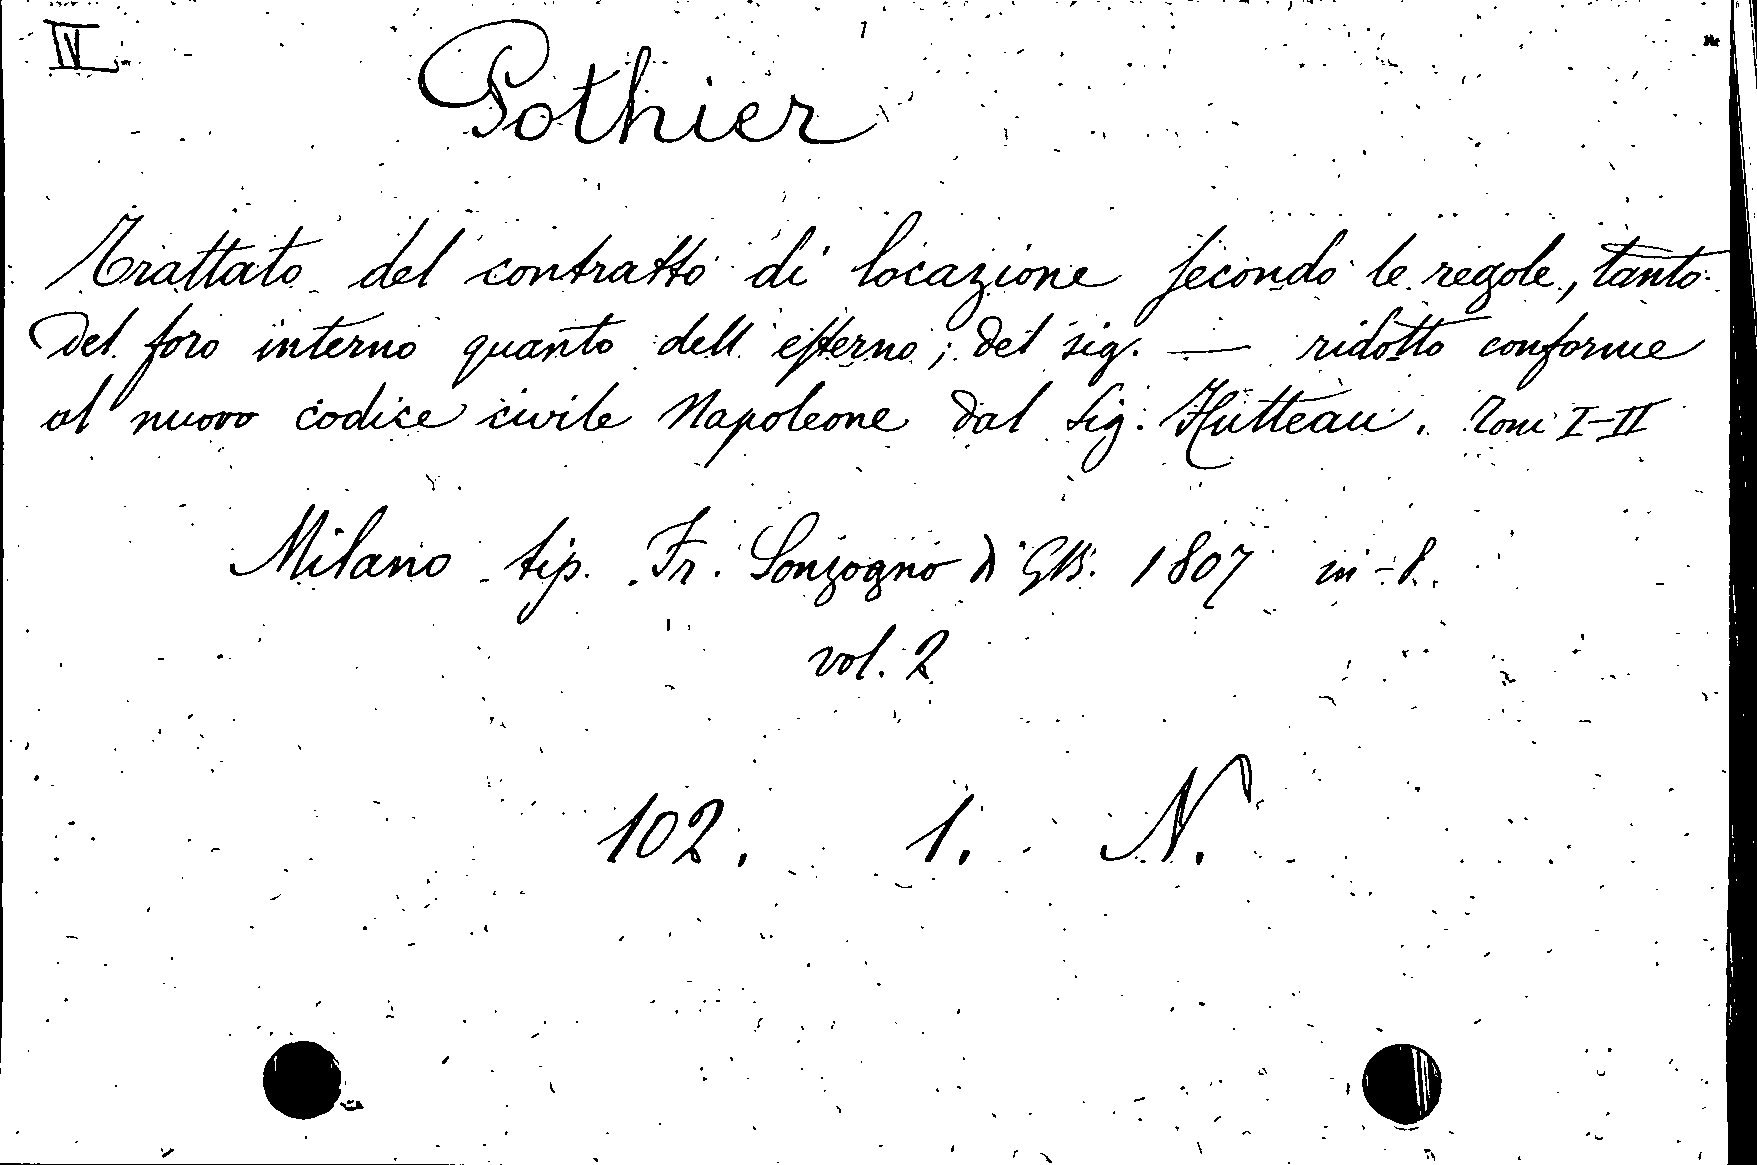 IV
Pothier
Trattato del contratto di locazione secondo le regole, tanto
del foro interno quanto dell'esterno; del sig. — ridotto conforme
al nuovo codice civile Napoleone dal sig. Hutteau. Tomi I-II
Milano tip. Fr. Sonzogno di GB. 1807 in-8.
vol. 2
102. 1. N.